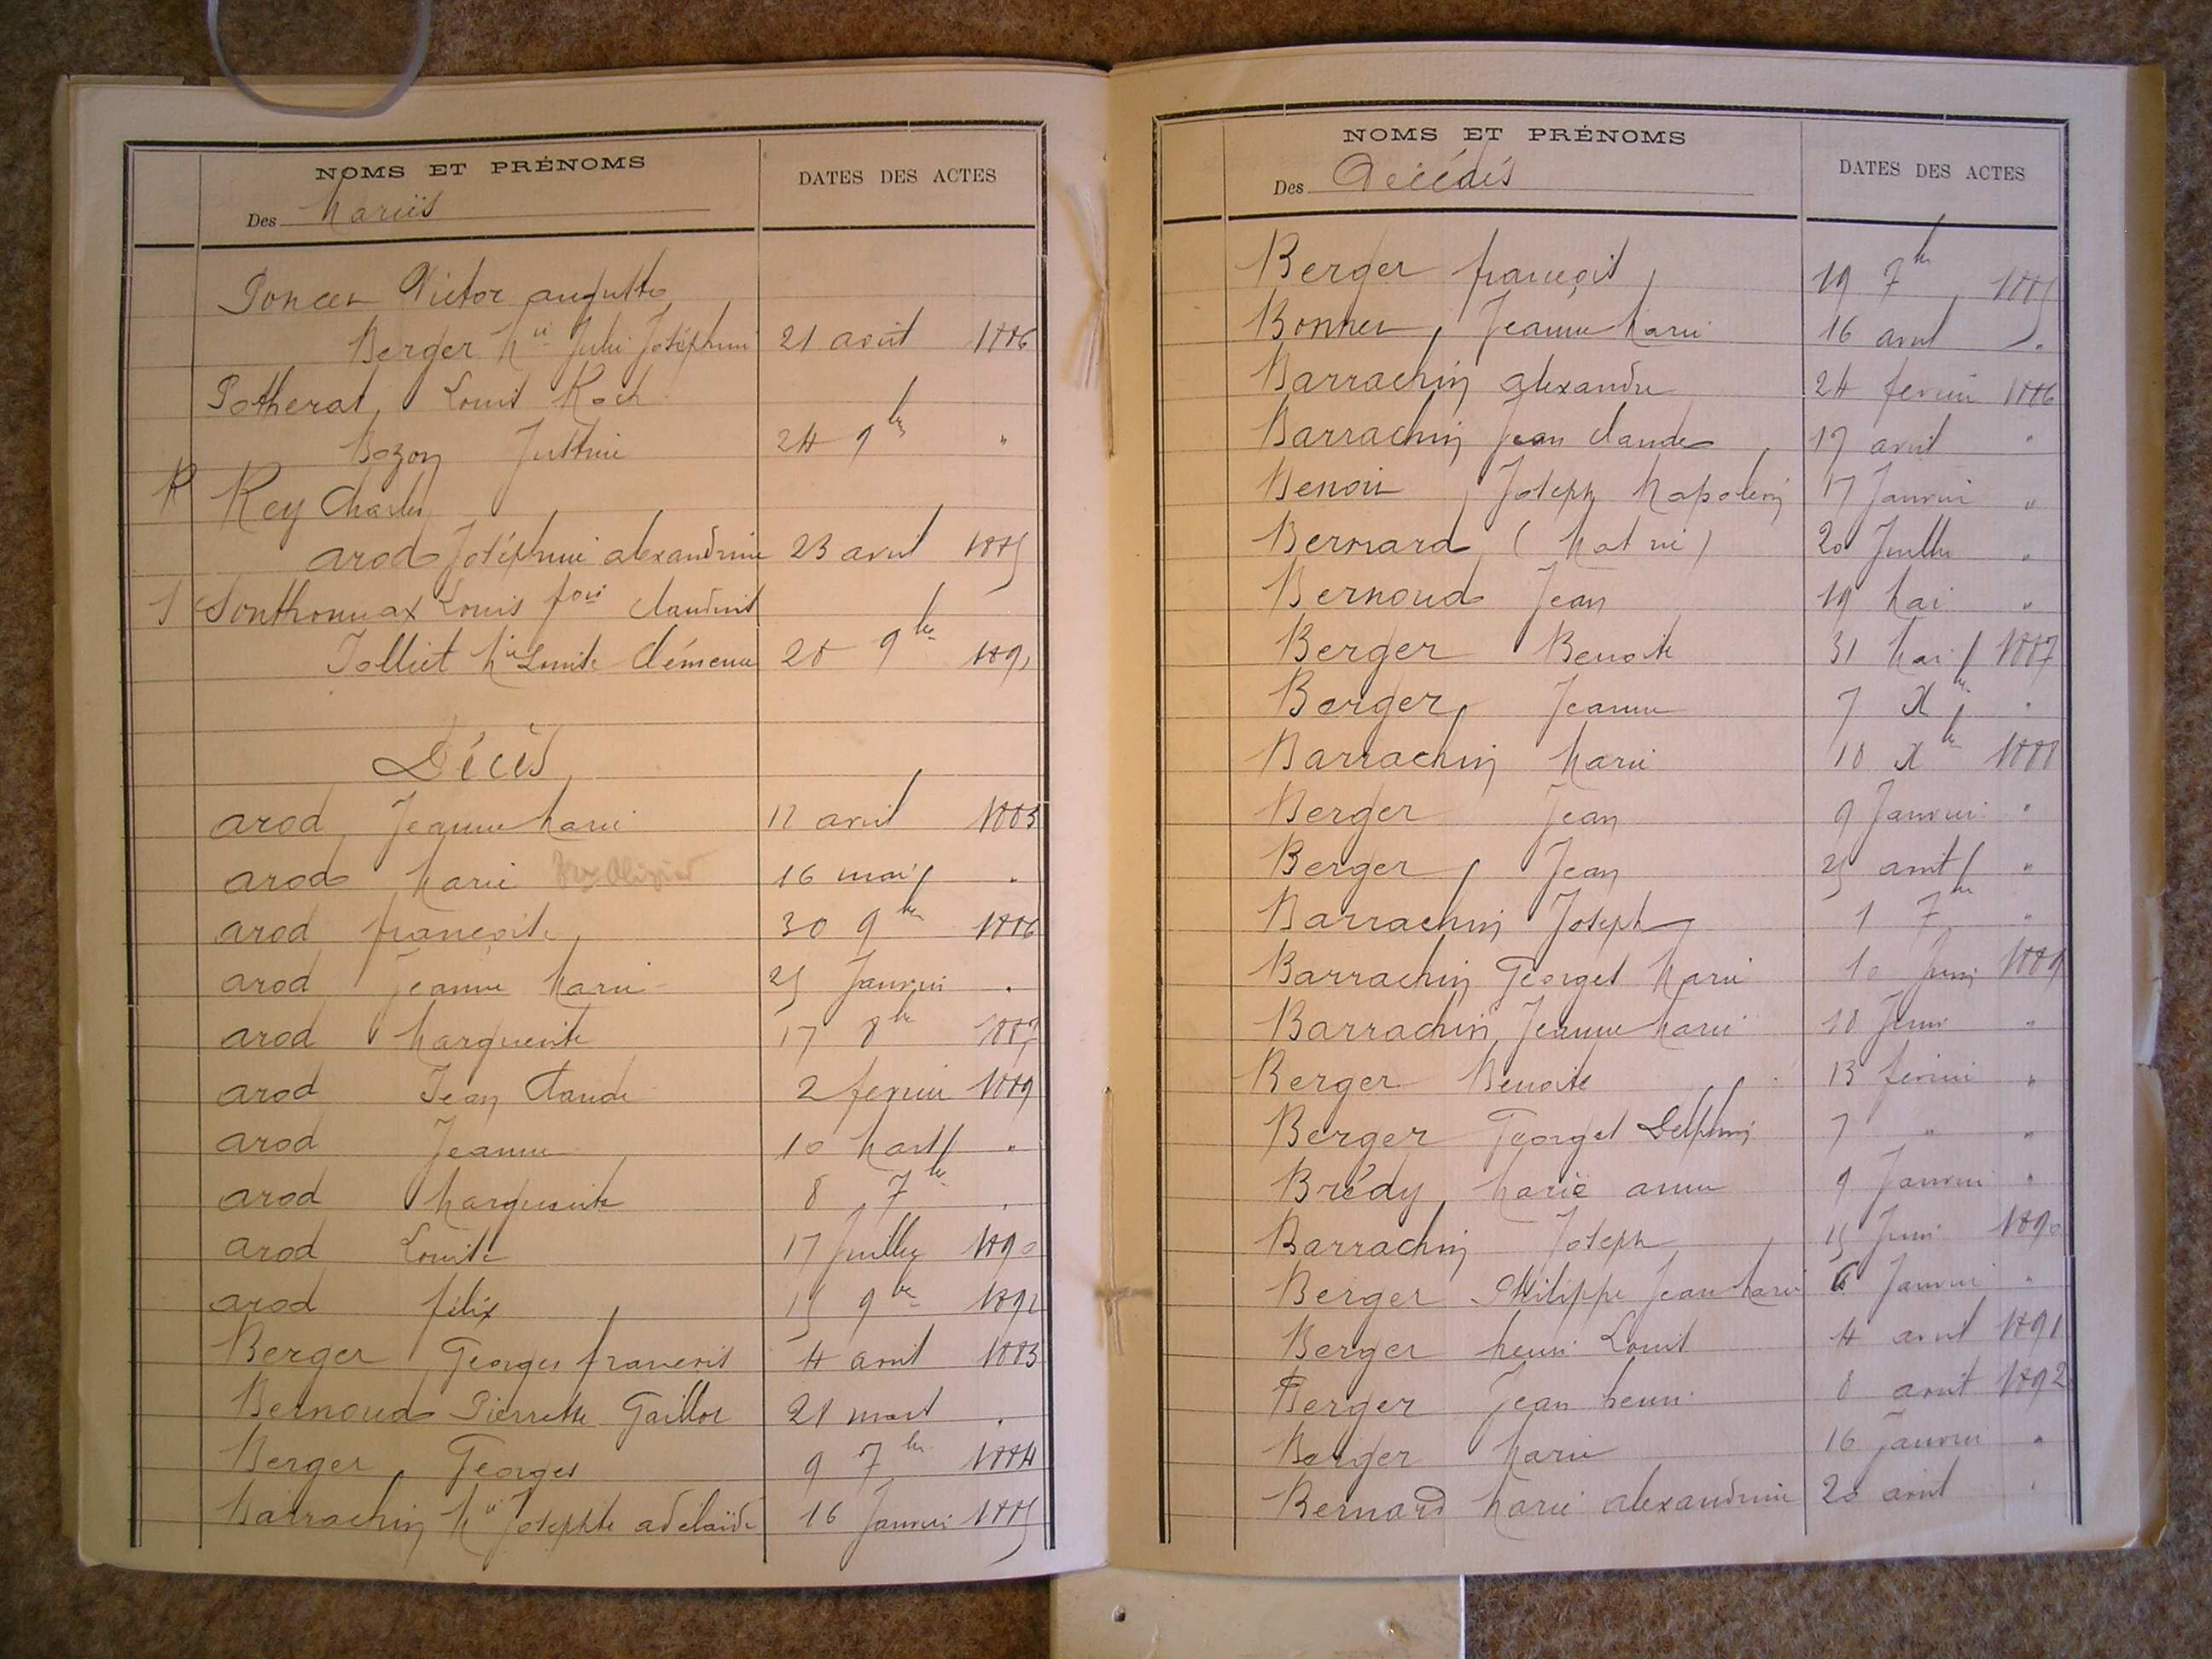 NOMS ET PRÉNOMS
DATES DES ACTES
Des Mariés
Poncet Victor auguste
Berger Mie Julie Joséphine 21 août 1886
Potherat Louis Roch
Bozon Justine 24 9bre "
R Rey Charles
arod Joséphine alexandrine 23 avril 1885
S Sonthonnax Louis fois Claudius
Jolliet Mie Louise Clémence 28 9bre 1891
Décès
arod Jeanne Marie 12 avril 1883
arod Marie 16 mai "
arod françoise 30 9bre 1886
arod Jeanne Marie 25 Janvier "
arod Marguerite 17 8bre 1887
arod Jean Claude 2 fevrier 1889
arod Jeanne 10 Mars "
arod Marguerite 8 7bre "
arod Louise 17 Juillet 1890
arod félix 15 9bre 1892
Berger Georges francois 4 avril 1883
Bernoud Pierrette Gaillot 21 mars "
Berger Georges 9 7bre 1884
Barrachin Mie Josephte adelaïde 16 Janvier 1885
NOMS ET PRÉNOMS
DATES DES ACTES
Des Décédés
Berger françois 19 7bre 1885
Bonnet Jeanne Marie 16 avril "
Barrachin alexandre 24 fevrier 1886
Barrachin Jean Claude 17 avril "
Benoit Joseph Napoleon 17 Janvier "
Bernard (Mort né) 20 Juillet "
Bernoud Jean 19 Mai "
Berger Benoite 31 Mai 1887
Berger Jeanne 7 Xbre "
Barrachin Marie 10 Xbre 1888
Berger Jean 9 Janvier "
Berger Jean 25 août "
Barrachin Joseph 1 7bre "
Barrachin Georges Marie 10 Juin 1889
Barrachin Jeanne Marie 18 Juin "
Berger Benoite 13 fevrier "
Berger Georges Delphin 7 " "
Brédy Marie anne 9 Janvier "
Barrachin Joseph 15 Juin 1890
Berger Philippe Jean Marie 6 Janvier "
Berger henri Louis 4 avril 1891
Berger Jean henri 8 août 1892
Berger Marie 16 Janvier "
Bernard Marie alexandrine 20 avril "